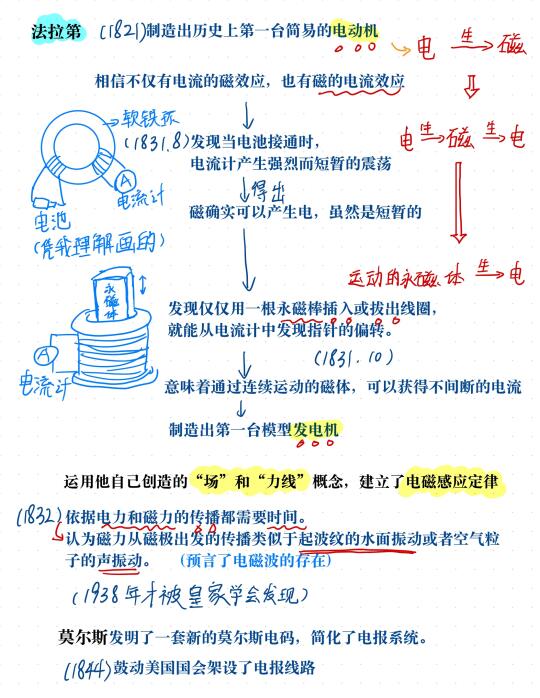 法拉第 (1821)制造出历史上第一台简易的电动机
电 生→ 磁
相信不仅有电流的磁效应，也有磁的电流效应
软铁环
(1831.8)发现当电池接通时，
电 生→ 磁 生→ 电
电流计产生强烈而短暂的震荡
A
电流计
得出
电池
磁确实可以产生电，虽然是短暂的
(凭我理解画的)
运动的永磁体 生→ 电
永磁体
发现仅仅用一根永磁棒插入或拔出线圈，
就能从电流计中发现指针的偏转。
A
(1831.10)
电流计
意味着通过连续运动的磁体，可以获得不间断的电流
制造出第一台模型发电机
运用他自己创造的“场”和“力线”概念，建立了电磁感应定律
(1832)依据电力和磁力的传播都需要时间。
认为磁力从磁极出发的传播类似于起波纹的水面振动或者空气粒
子的声振动。 (预言了电磁波的存在)
(1938年才被皇家学会发现)
莫尔斯发明了一套新的莫尔斯电码，简化了电报系统。
(1844)鼓动美国国会架设了电报线路